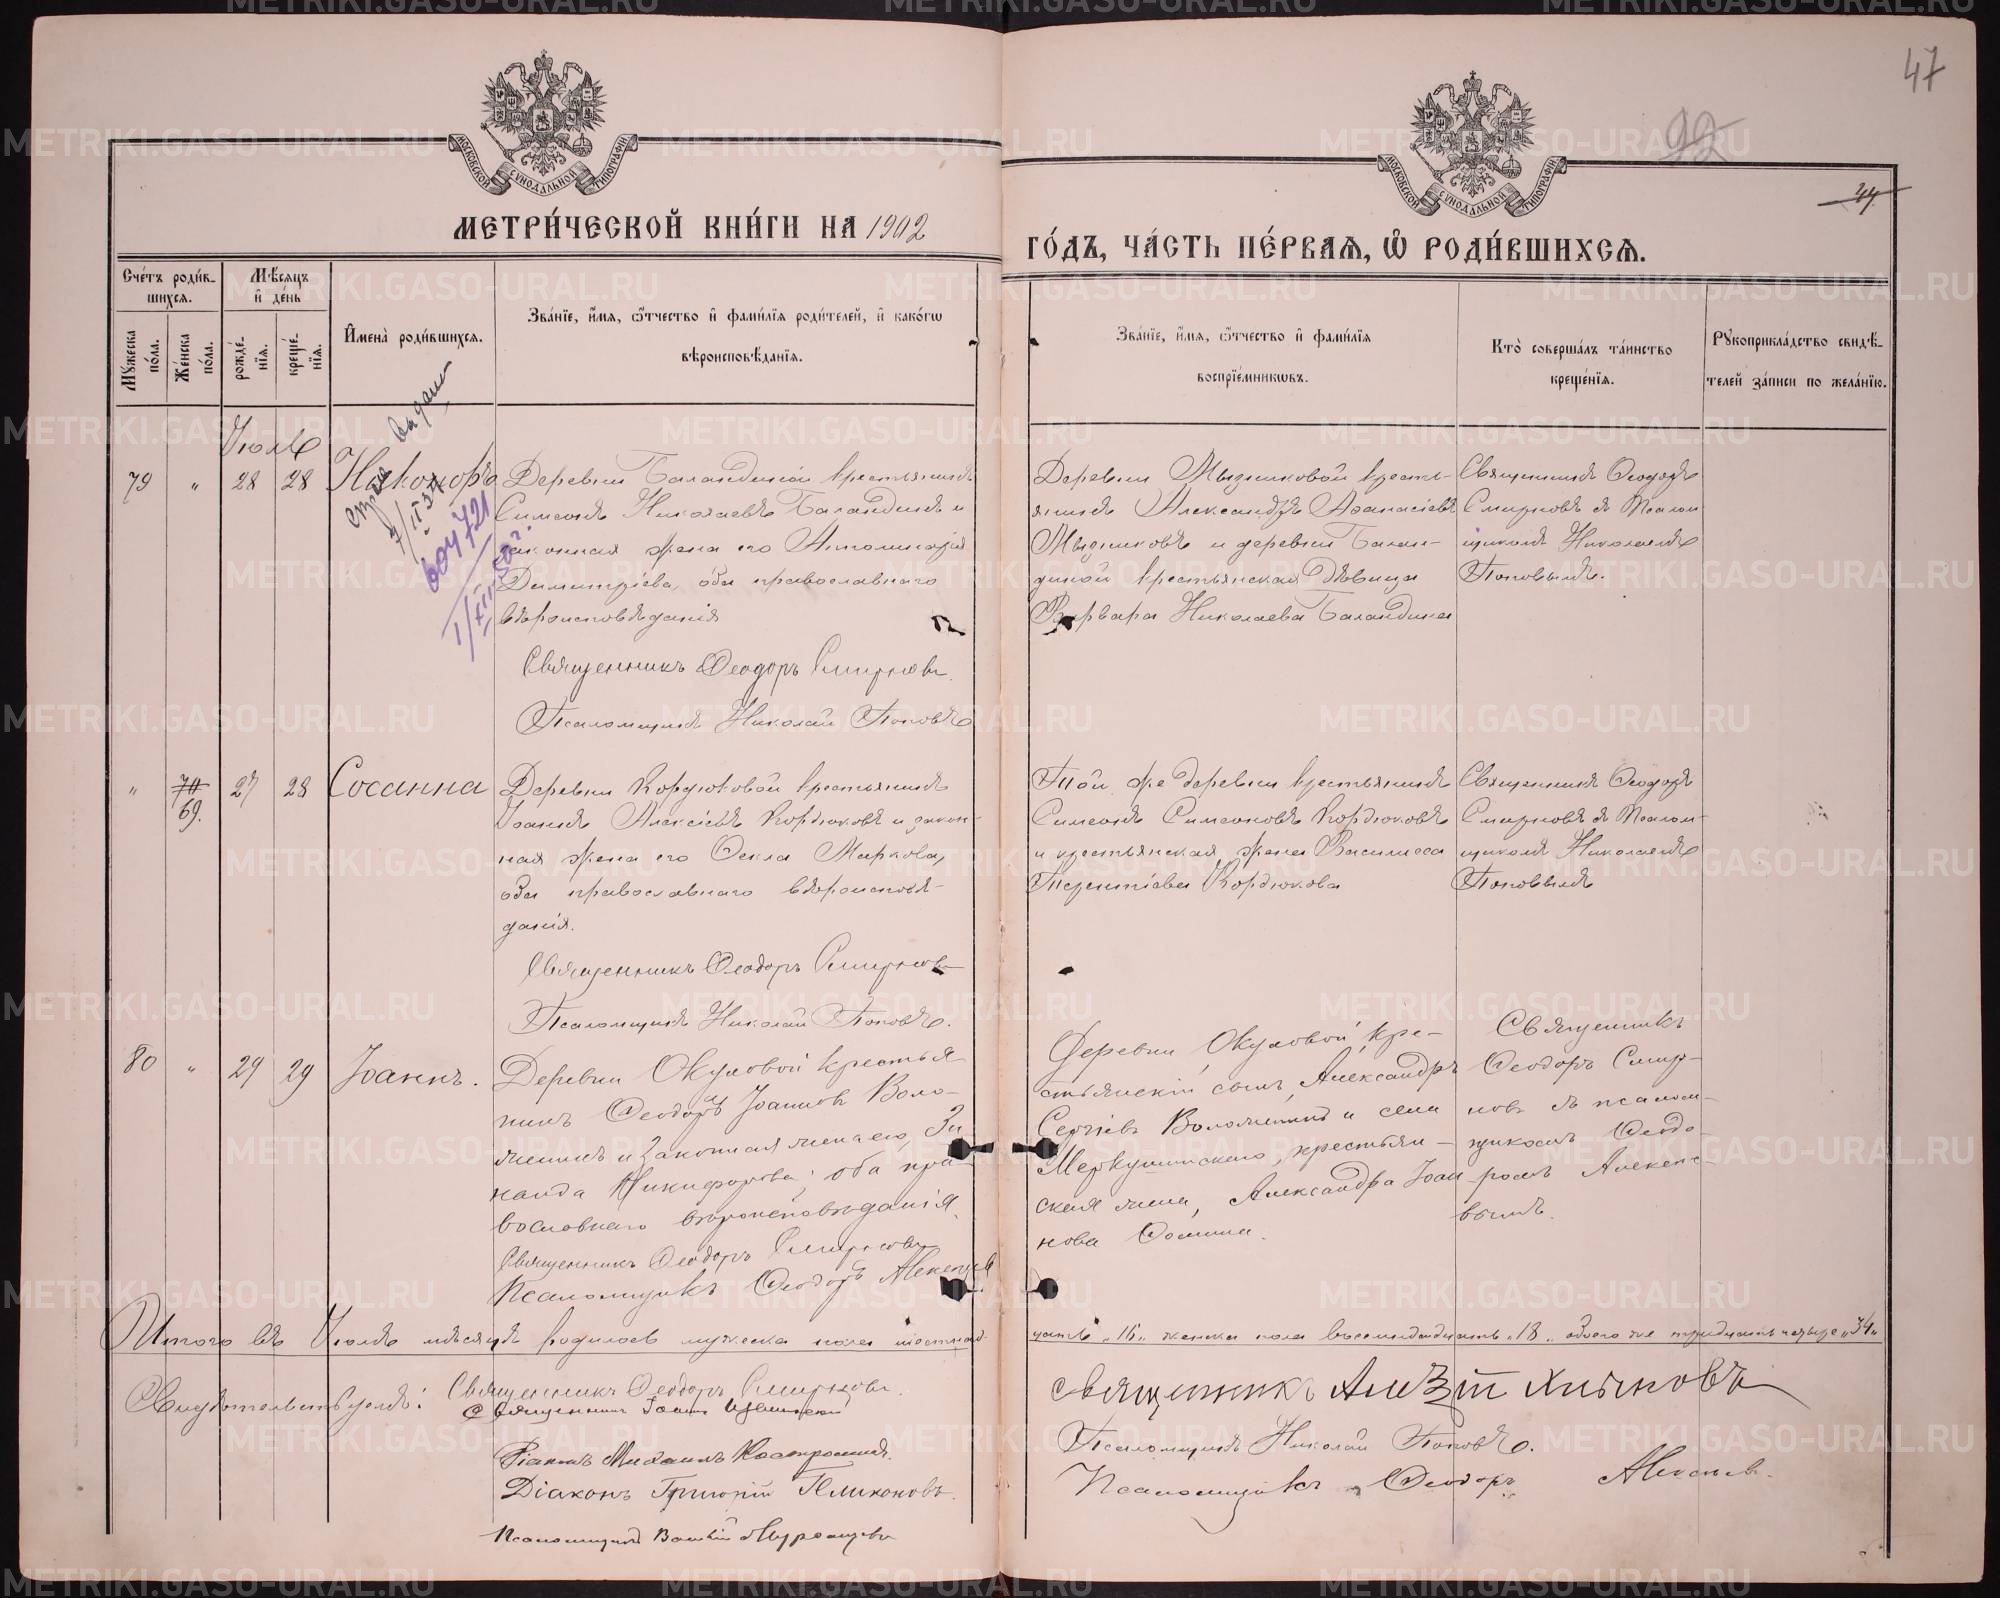 47
92
44
МОСКОВСКОЙ СѴНОДАЛЬНОЙ ТИПОГРАФІИ
МОСКОВСКОЙ СѴНОДАЛЬНОЙ ТИПОГРАФІИ
МЕТРИ́ЧЕСКОЙ КНИ́ГИ НА 1902
ГО́ДЪ, ЧА́СТЬ ПЕ́РВАЯ, Ѽ РОДИ́ВШИХСЯ.
Сче́тъ роди́в-
шихся.
Мꙋ́жеска по́ла.
Же́нска по́ла.
Мѣ́сяцъ и҆ де́нь
рожде́-
нїя.
креще́-
нїя.
И҆мена̀ роди́вшихся.
Зва́нїе, и҆́мя, ѻ҆́тчество и҆ фами́лїя роди́телей, и҆ како́гѡ
вѣроисповѣ́данїя.
Зва́нїе, и҆́мя, ѻ҆́тчество и҆ фами́лїя
воспрїе́мникѡвъ.
Кто̀ соверша́лъ та́инство
креще́нїя.
Рꙋкоприкла́дство свидѣ́-
телей за́писи по жела́нїю.
Іюль
79 " 28 28 Никоноръ
выдан
604721
Деревни Баландиной крестьянинъ
Симеонъ Николаевъ Баландинъ и
законная жена его Апполинарія
Димитріева, оба православнаго
вѣроисповѣданія
Священникъ Ѳеодоръ Смирновъ.
Псаломщикъ Николай Поповъ
Деревни Мызниковой кресть-
янинъ Александръ Аѳанасіевъ
Мызниковъ и деревни Балан-
диной крестьянская дѣвица
Варвара Николаева Баландина
Священникъ Ѳеодоръ
Смирновъ съ Псалом
щикомъ Николаемъ
Поповымъ.
" 70 69. 27 28 Сосанна
Деревни Кордюковой крестьянинъ
Іоаннъ Алексіевъ Кордюковъ и закон-
ная жена его Ѳекла Маркова,
оба православнаго вѣроисповѣ-
данія.
Священникъ Ѳеодоръ Смирновъ
Псаломщикъ Николай Поповъ.
Той же деревни крестьянинъ
Симеонъ Симеоновъ Кордюковъ
и крестьянская жена Василисса
Терентіева Кордюкова
Священникъ Ѳеодоръ
Смирновъ съ Псалом-
щикомъ Николаемъ
Поповымъ
80 " 29 29 Іоаннъ.
Деревни Окуловой крестья
нинъ Ѳеодоръ Іоанновъ Воло-
женинъ и законная жена его Зи
наида Никифорова; оба пра-
вославнаго вѣроисповѣданія.
Священникъ Ѳеодоръ Смирновъ
Псаломщикъ Ѳеодоръ Алексѣевъ
Деревни Окуловой кре-
стьянскій сынъ, Александръ
Сергіевъ Воложенинъ и села
Меркушинскаго, крестьян-
ская жена, Александра Іоан
нова Ѳомина.
Священникъ
Ѳеодоръ Смир-
новъ съ псалом-
щикомъ Ѳеодо-
ромъ Алексѣе-
вымъ.
Итого въ Іюлѣ мѣсяцѣ родилось мужеска пола шестнад-
цать „16„ женска пола восемнадцать „18„ обоего же тридцать четыре „34„
Свидѣтельствуемъ: Священникъ Ѳеодоръ Смирновъ.
Священникъ Іоаннъ
Діаконъ Михаилъ Костроминъ.
Діаконъ Григорій
Псаломщикъ
Священникъ
Псаломщикъ Николай Поповъ.
Псаломщикъ Ѳеодоръ Алексѣевъ.
METRIKI.GASO-URAL.RU